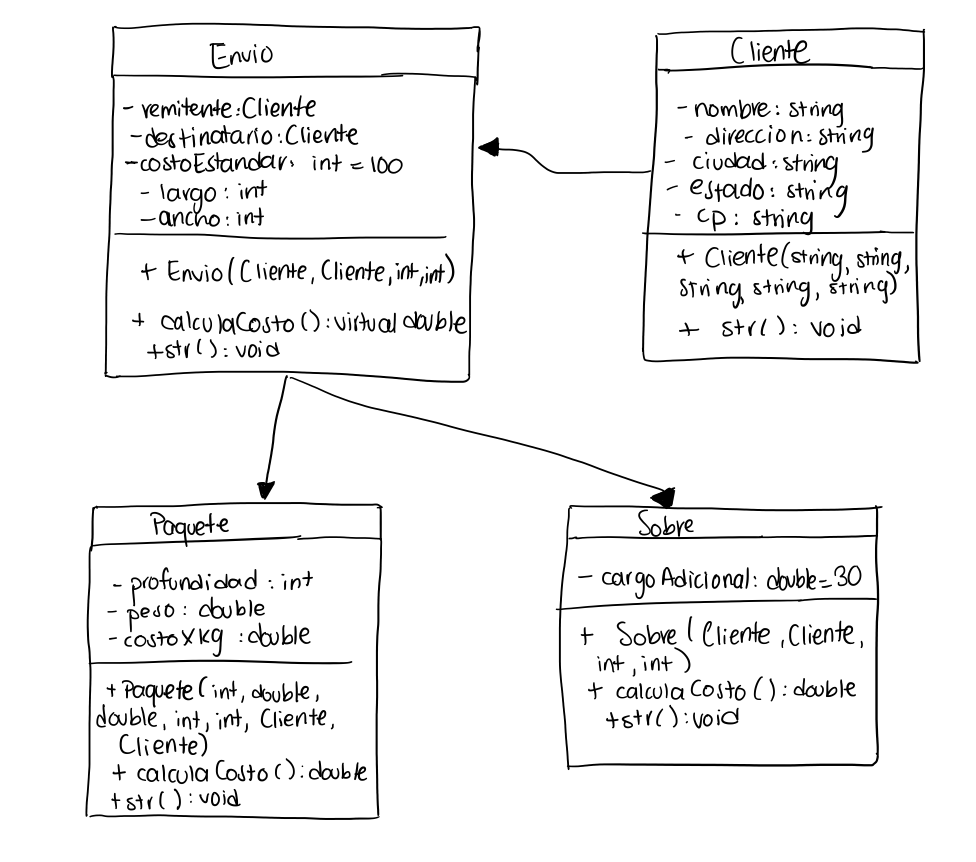 Envio
- remitente:Cliente
- destinatario:Cliente
- costoEstandar: int = 100
- largo: int
- ancho: int
+ Envio(Cliente, Cliente, int, int)
+ calculaCosto(): virtual double
+str(): void
Cliente
- nombre: string
- direccion: string
- ciudad: string
- estado: string
- cp: string
+ Cliente(string, string,
string, string, string)
+ str(): void
Paquete
- profundidad: int
- peso: double
- costoXkg: double
+ Paquete(int, double,
double, int, int, Cliente,
Cliente)
+ calculaCosto(): double
+ str(): void
Sobre
- cargoAdicional: double=30
+ Sobre(Cliente, Cliente,
int, int)
+ calculaCosto(): double
+str(): void